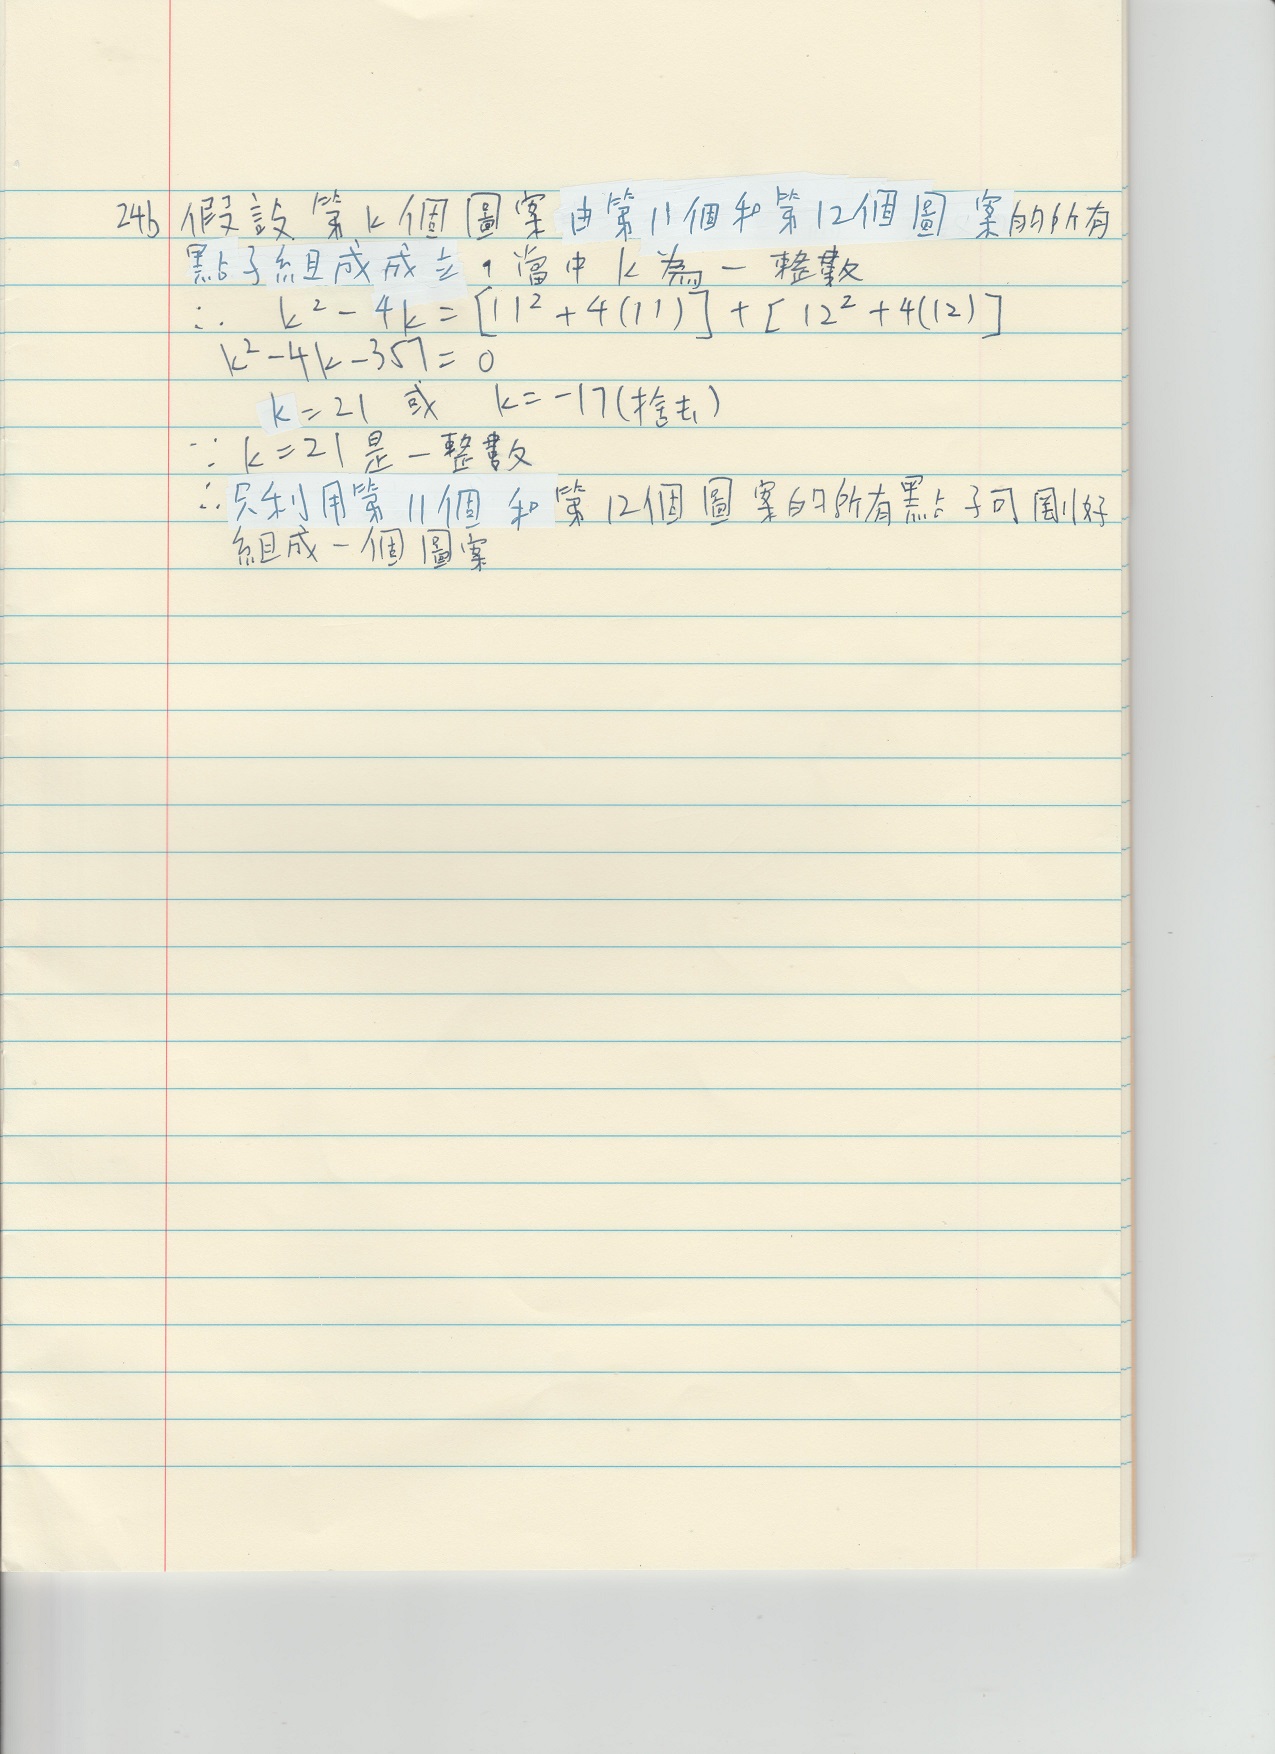 24b 假設第k個圖案由第11個和第12個圖案的所有
點子組成成立，當中k為一整數
∴ k²-4k=[11²+4(11)]+[12²+4(12)]
k²-4k-357=0
k=21 或 k=-17(捨去)
∵k=21是一整數
∴只利用第11個和第12個圖案的所有點子可剛好
組成一個圖案